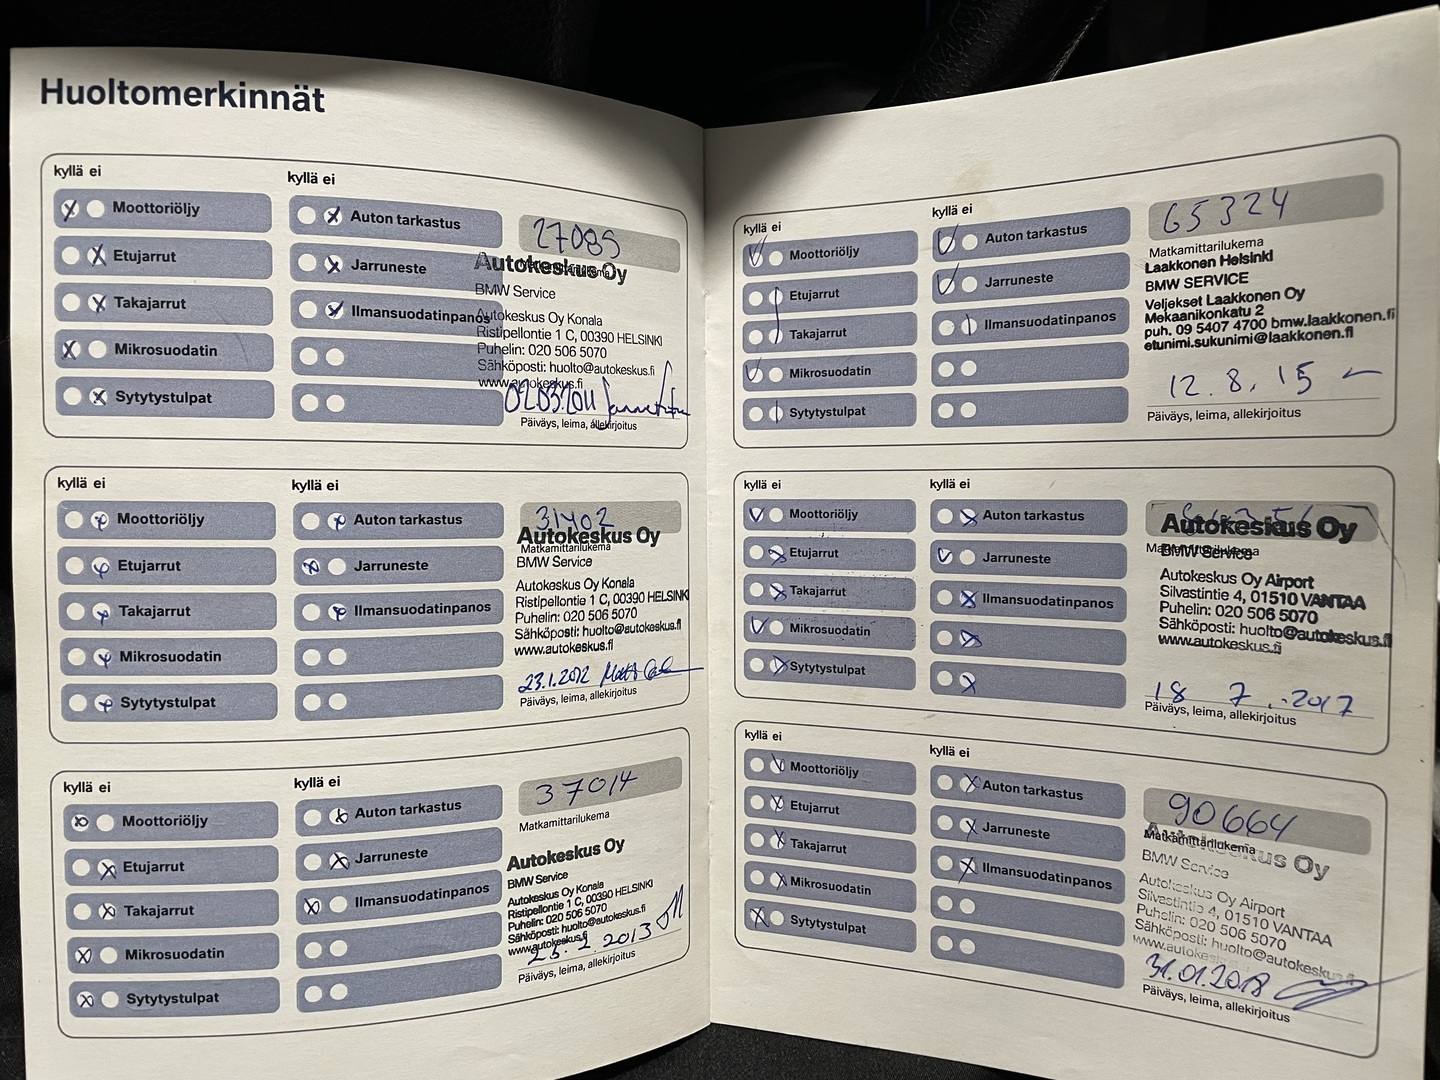 Huoltomerkinnät
kyllä ei
Moottoriöljy
Etujarrut
Takajarrut
Mikrosuodatin
Sytytystulpat
kyllä ei
Auton tarkastus
Jarruneste
Ilmansuodatinpanos
27085
Autokeskus Oy
BMW Service
Autokeskus Oy Konala
Ristipellontie 1 C, 00390 HELSINKI
Puhelin: 020 506 5070
Sähköposti: huolto@autokeskus.fi
www.autokeskus.fi
02032011
Päiväys, leima, allekirjoitus
kyllä ei
Moottoriöljy
Etujarrut
Takajarrut
Mikrosuodatin
Sytytystulpat
kyllä ei
Auton tarkastus
Jarruneste
Ilmansuodatinpanos
31402
Autokeskus Oy
Matkamittarilukema
BMW Service
Autokeskus Oy Konala
Ristipellontie 1 C, 00390 HELSINKI
Puhelin: 020 506 5070
Sähköposti: huolto@autokeskus.fi
www.autokeskus.fi
23.1.2012
Päiväys, leima, allekirjoitus
kyllä ei
Moottoriöljy
Etujarrut
Takajarrut
Mikrosuodatin
Sytytystulpat
kyllä ei
Auton tarkastus
Jarruneste
Ilmansuodatinpanos
37014
Matkamittarilukema
Autokeskus Oy
BMW Service
Autokeskus Oy Konala
Ristipellontie 1 C, 00390 HELSINKI
Puhelin: 020 506 5070
Sähköposti: huolto@autokeskus.fi
www.autokeskus.fi
2013
Päiväys, leima, allekirjoitus
kyllä ei
Moottoriöljy
Etujarrut
Takajarrut
Mikrosuodatin
Sytytystulpat
kyllä ei
Auton tarkastus
Jarruneste
Ilmansuodatinpanos
65324
Matkamittarilukema
Laakkonen Helsinki
BMW SERVICE
Veljekset Laakkonen Oy
Mekaanikonkatu 2
puh. 09 5407 4700 bmw.laakkonen.fi
etunimi.sukunimi@laakkonen.fi
12.8.15
Päiväys, leima, allekirjoitus
kyllä ei
Moottoriöljy
Etujarrut
Takajarrut
Mikrosuodatin
Sytytystulpat
kyllä ei
Auton tarkastus
Jarruneste
Ilmansuodatinpanos
Autokeskus Oy
Matkamittarilukema
BMW Service
Autokeskus Oy Airport
Silvastintie 4, 01510 VANTAA
Puhelin: 020 506 5070
Sähköposti: huolto@autokeskus.fi
www.autokeskus.fi
18 7 .2017
Päiväys, leima, allekirjoitus
kyllä ei
Moottoriöljy
Etujarrut
Takajarrut
Mikrosuodatin
Sytytystulpat
kyllä ei
Auton tarkastus
Jarruneste
Ilmansuodatinpanos
90664
Matkamittarilukema
Autokeskus Oy
BMW Service
Autokeskus Oy Airport
Silvastintie 4, 01510 VANTAA
Puhelin: 020 506 5070
Sähköposti: huolto@autokeskus.fi
www.autokeskus.fi
31.01.2018
Päiväys, leima, allekirjoitus